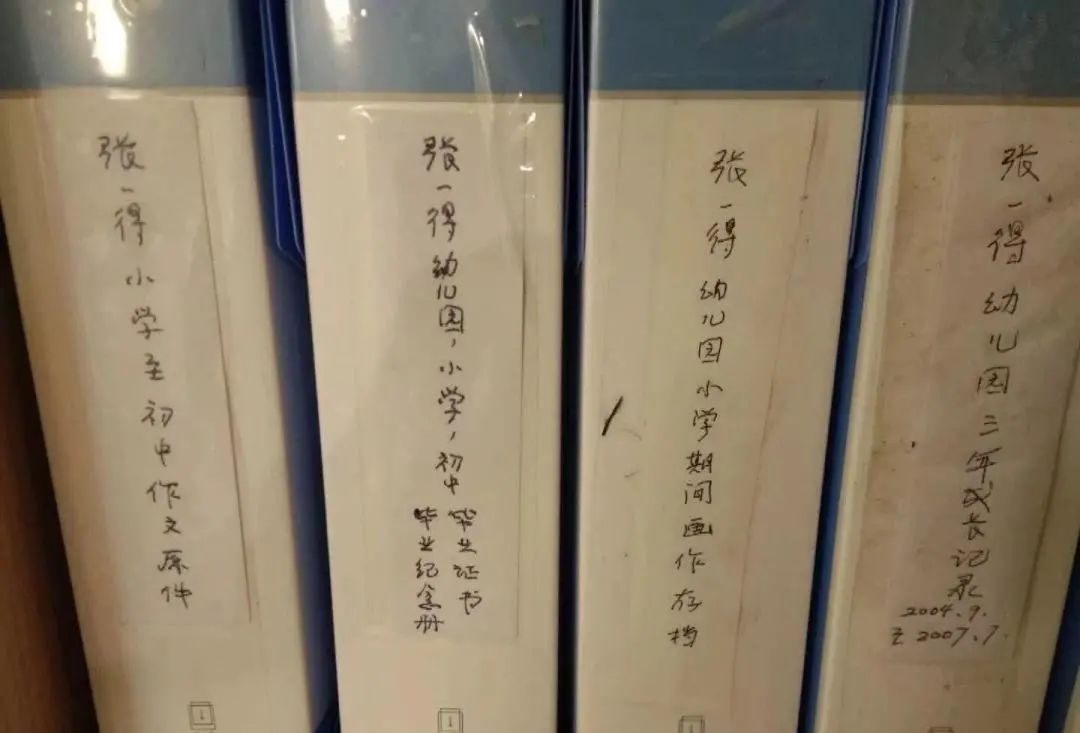 张一得 小学至初中作文原件
张一得 幼儿园,小学,初中
毕业证书
毕业纪念册
张一得 幼儿园小学期间画作存档
张一得 幼儿园三年成长记录
2004.9.
至2007.7.